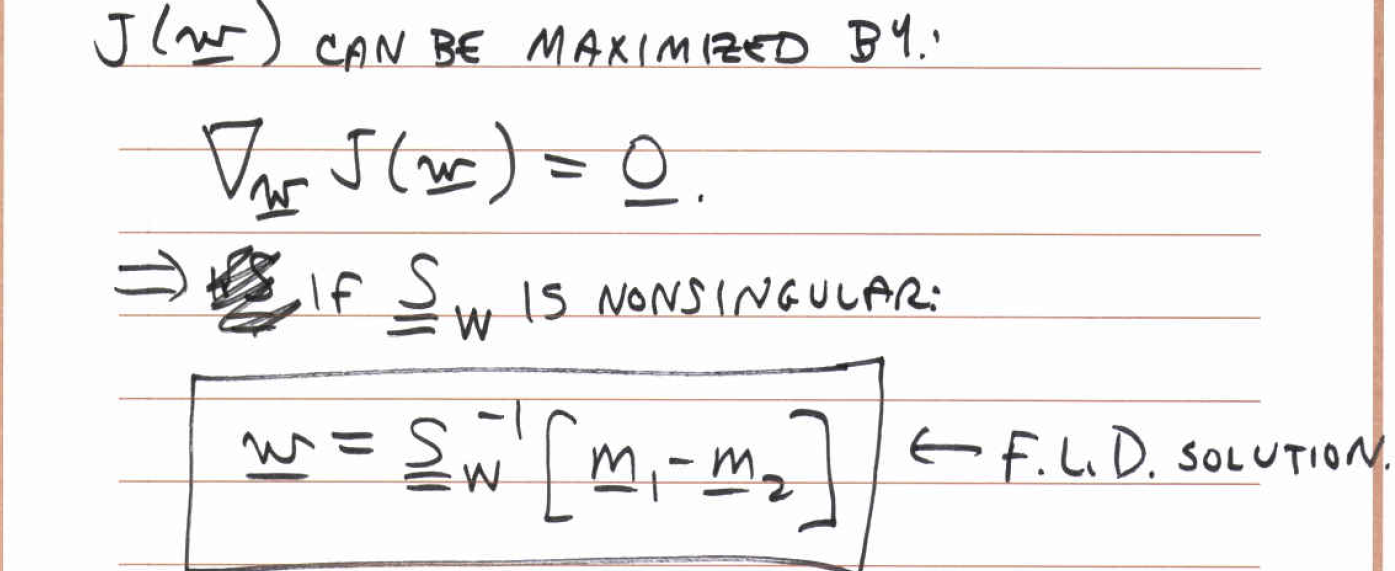 J(w) CAN BE MAXIMIZED BY:
∇w J(w) = 0.
⇒ IF S_W IS NONSINGULAR:
w = S_W^-1 [m_1 - m_2] ← F.L.D. SOLUTION.